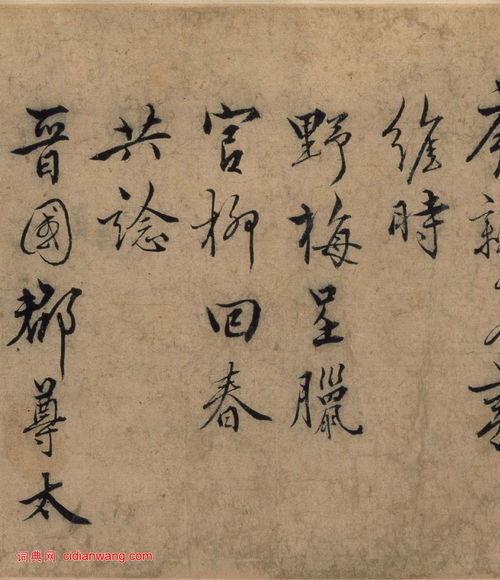 維時
野梅呈臘
官柳回春
共諗
晋國郡尊太
词典网 cidianwang.com